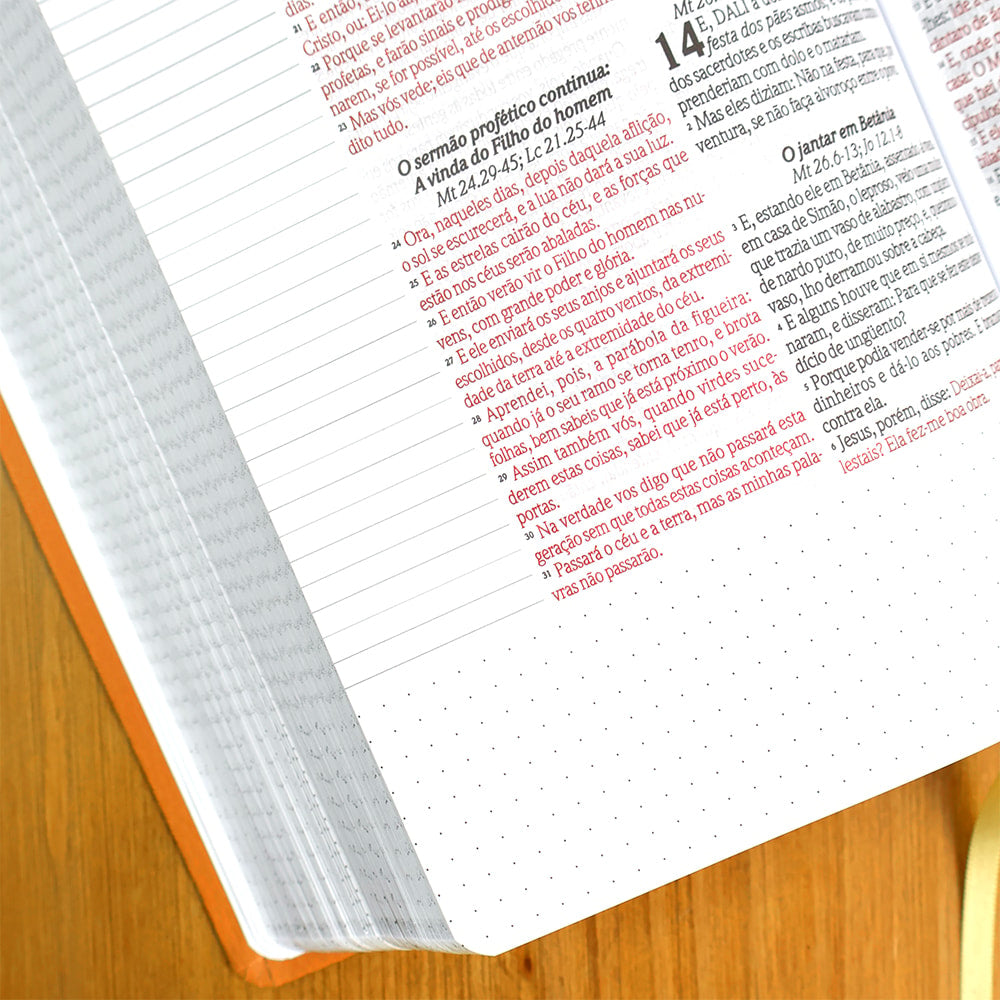 dias.
21 E então,
Cristo, ou: Ei-lo ali,
22 Porque se levantarão
profetas, e farão sinais e prodígios
narem, se for possível, até os escolhidos
23 Mas vós vede; eis que de antemão vos tenho
dito tudo.
O sermão profético continua:
A vinda do Filho do homem
Mt 24.29-45; Lc 21.25-44
24 Ora, naqueles dias, depois daquela aflição,
o sol se escurecerá, e a lua não dará a sua luz.
25 E as estrelas cairão do céu, e as forças que
estão nos céus serão abaladas.
26 E então verão vir o Filho do homem nas nu-
vens, com grande poder e glória.
27 E ele enviará os seus anjos e ajuntará os seus
escolhidos, desde os quatro ventos, da extremi-
dade da terra até a extremidade do céu.
28 Aprendei, pois, a parábola da figueira:
quando já o seu ramo se torna tenro, e brota
folhas, bem sabeis que já está próximo o verão.
29 Assim também vós, quando virdes suce-
derem estas coisas, sabei que já está perto, às
portas.
30 Na verdade vos digo que não passará esta
geração sem que todas estas coisas aconteçam.
31 Passará o céu e a terra, mas as minhas pala-
vras não passarão.
14 E, DALI a
festa dos pães asmos, e os
dos sacerdotes e os escribas buscavam
prenderiam com dolo e o matariam.
2 Mas eles diziam: Não na festa, para que
ventura, se não faça alvoroço entre o povo.
O jantar em Betânia
Mt 26.6-13; Jo 12.1-8
3 E, estando ele em Betânia, assentado
em casa de Simão, o leproso, veio uma mulher
que trazia um vaso de alabastro, com
de nardo puro, de muito preço, e, quebrando
vaso, lho derramou sobre a cabeça.
4 E alguns houve que em si mesmos se
naram, e disseram: Para que se fez este
dício de ungüento?
5 Porque podia vender-se por mais de
dinheiros e dá-lo aos pobres. E
contra ela.
6 Jesus, porém, disse: Deixai-a,
lestais? Ela fez-me boa obra.